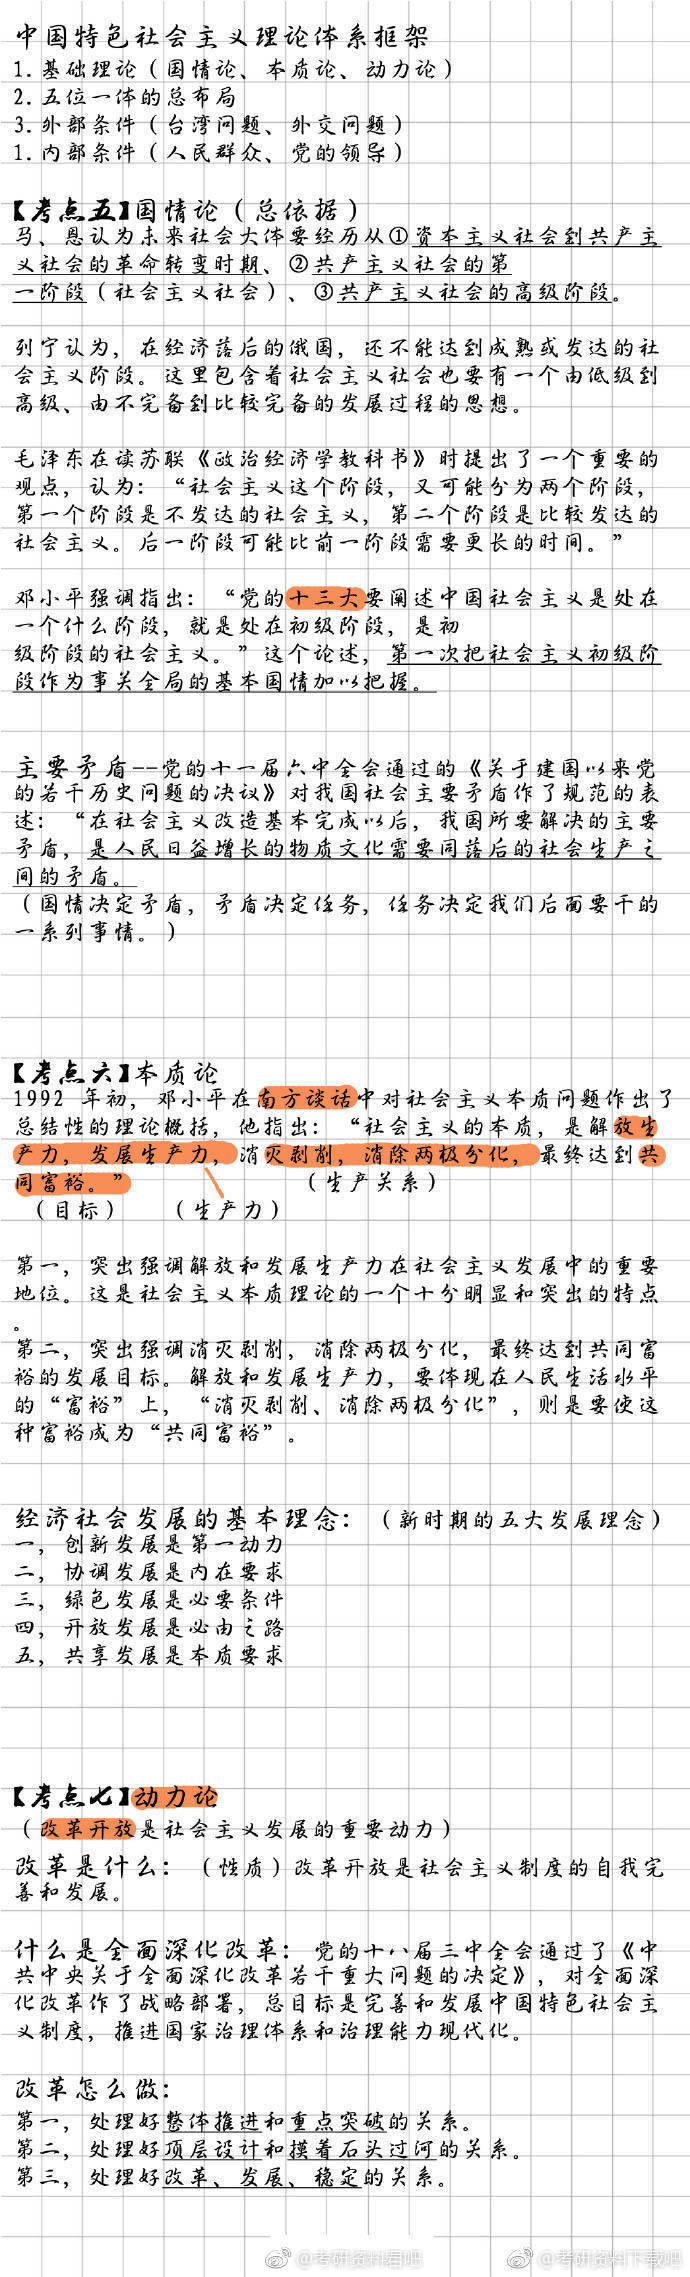 中国特色社会主义理论体系框架
1.基础理论（国情论、本质论、动力论）
2.五位一体的总布局
3.外部条件（台湾问题、外交问题）
1.内部条件（人民群众、党的领导）
【考点五】国情论（总依据）
马、恩认为未来社会大体要经历从①资本主义社会到共产主
义社会的革命转变时期、②共产主义社会的第
一阶段（社会主义社会）、③共产主义社会的高级阶段。
列宁认为，在经济落后的俄国，还不能达到成熟或发达的社
会主义阶段。这里包含着社会主义社会也要有一个由低级到
高级、由不完备到比较完备的发展过程的思想。
毛泽东在读苏联《政治经济学教科书》时提出了一个重要的
观点，认为：“社会主义这个阶段，又可能分为两个阶段，
第一个阶段是不发达的社会主义，第二个阶段是比较发达的
社会主义。后一阶段可能比前一阶段需要更长的时间。”
邓小平强调指出：“党的十三大要阐述中国社会主义是处在
一个什么阶段，就是处在初级阶段，是初
级阶段的社会主义。”这个论述，第一次把社会主义初级阶
段作为事关全局的基本国情加以把握。
主要矛盾--党的十一届六中全会通过的《关于建国以来党
的若干历史问题的决议》对我国社会主要矛盾作了规范的表
述：“在社会主义改造基本完成以后，我国所要解决的主要
矛盾，是人民日益增长的物质文化需要同落后的社会生产之
间的矛盾。
（国情决定矛盾，矛盾决定任务，任务决定我们后面要干的
一系列事情。）
【考点六】本质论
1992 年初，邓小平在南方谈话中对社会主义本质问题作出了
总结性的理论概括，他指出：“社会主义的本质，是解放生
产力，发展生产力，消灭剥削，消除两极分化，最终达到共
同富裕。”
（生产关系）
（目标）（生产力）
第一，突出强调解放和发展生产力在社会主义发展中的重要
地位。这是社会主义本质理论的一个十分明显和突出的特点
。
第二，突出强调消灭剥削，消除两极分化，最终达到共同富
裕的发展目标。解放和发展生产力，要体现在人民生活水平
的“富裕”上，“消灭剥削、消除两极分化”，则是要使这
种富裕成为“共同富裕”。
经济社会发展的基本理念：（新时期的五大发展理念）
一，创新发展是第一动力
二，协调发展是内在要求
三，绿色发展是必要条件
四，开放发展是必由之路
五，共享发展是本质要求
【考点七】动力论
（改革开放是社会主义发展的重要动力）
改革是什么：（性质）改革开放是社会主义制度的自我完
善和发展。
什么是全面深化改革：党的十八届三中全会通过了《中
共中央关于全面深化改革若干重大问题的决定》，对全面深
化改革作了战略部署，总目标是完善和发展中国特色社会主
义制度，推进国家治理体系和治理能力现代化。
改革怎么做：
第一，处理好整体推进和重点突破的关系。
第二，处理好顶层设计和摸着石头过河的关系。
第三，处理好改革、发展、稳定的关系。
@考研资料君吧 @考研资料下载吧